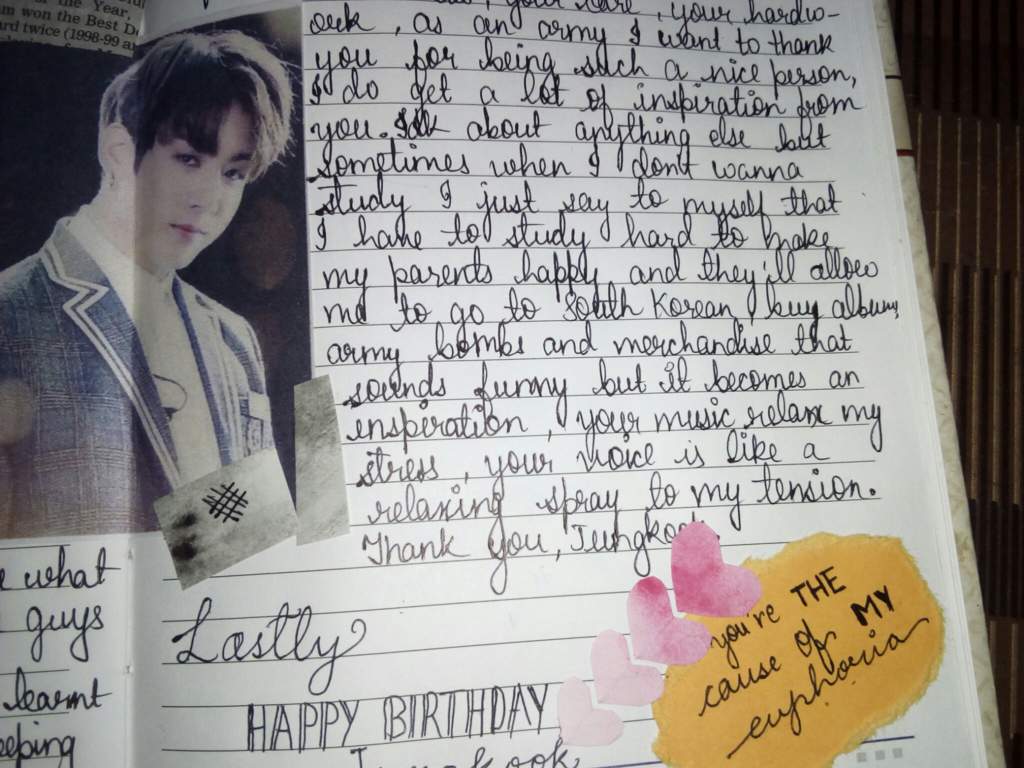 the Year,
m won the Best D
rd twice (1998-99 a
your care, your hardwo-
ork, as an army I want to thank
you for being such a nice person,
I do get a lot of inspiration from
you. Idk about anything else but
sometimes when I don't wanna
study I just say to myself that
I have to study hard to make
my parents happy and they'll allow
me to go to South Korean, buy albums,
army bombs and merchandise that
sounds funny but it becomes an
inspiration, your music relax my
stress, your voice is like a
relaxing spray to my tension.
Thank you, Jungkook.
what
guys
learnt
eeping
Lastly
HAPPY BIRTHDAY
Jungkook
you're THE
cause of MY
euphoria